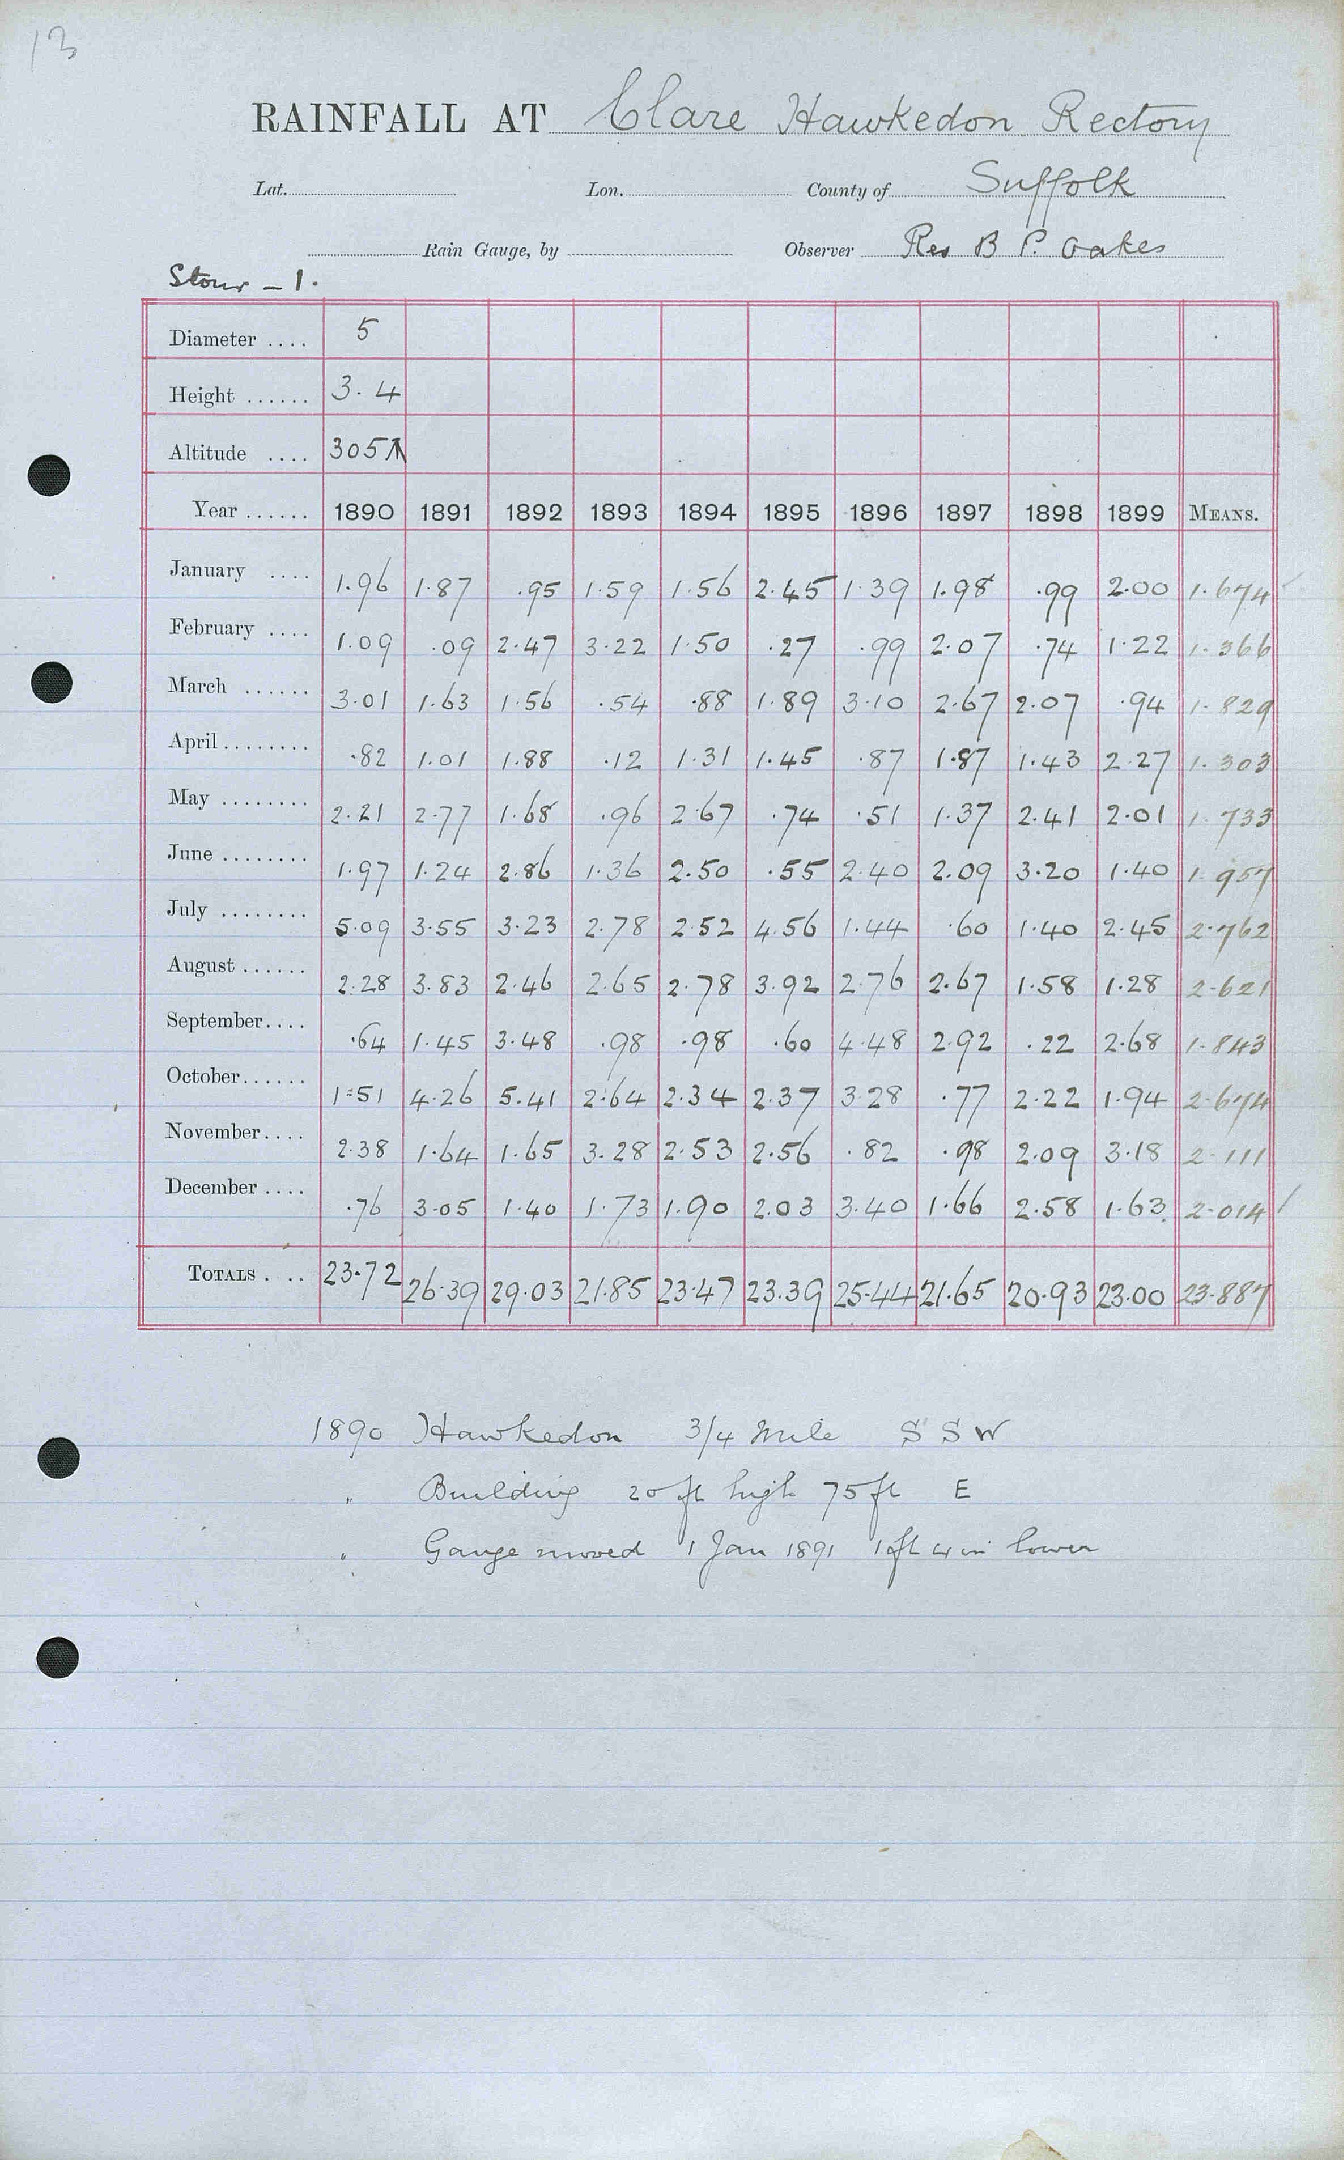 13
RAINFALL AT Clare Hawkedon Rectory
Lat. Lon. County of Suffolk
Rain Gauge, by Observer Rev B P. Oakes
Stour - 1.
Diameter .... 5
Height ...... 3. 4
Altitude .... 305
Year ...... 1890 1891 1892 1893 1894 1895 1896 1897 1898 1899 MEANS.
January .... 1.96 1.87 .95 1.59 1.56 2.45 1.39 1.98 .99 2.00 1.674
February .... 1.09 .09 2.47 3.22 1.50 .27 .99 2.07 .74 1.22 1.366
March ...... 3.01 1.63 1.56 .54 .88 1.89 3.10 2.67 2.07 .94 1.829
April ........ .82 1.01 1.88 .12 1.31 1.45 .87 1.87 1.43 2.27 1.303
May ........ 2.21 2.77 1.68 .96 2.67 .74 .51 1.37 2.41 2.01 1.733
June ........ 1.97 1.24 2.86 1.36 2.50 .55 2.40 2.09 3.20 1.40 1.957
July ........ 5.09 3.55 3.23 2.78 2.52 4.56 1.44 .60 1.40 2.45 2.762
August ...... 2.28 3.83 2.46 2.65 2.78 3.92 2.76 2.67 1.58 1.28 2.621
September .... .64 1.45 3.48 .98 .98 .60 4.48 2.92 .22 2.68 1.843
October ...... 1.51 4.26 5.41 2.64 2.34 2.37 3.28 .77 2.22 1.94 2.674
November .... 2.38 1.64 1.65 3.28 2.53 2.56 .82 .98 2.09 3.18 2.111
December .... .76 3.05 1.40 1.73 1.90 2.03 3.40 1.66 2.58 1.63 2.014
TOTALS . .. 23.72 26.39 29.03 21.85 23.47 23.39 25.44 21.65 20.93 23.00 23.887
1890 Hawkedon 3/4 Mile S S W
" Building 20 ft high 75 ft E
" Gauge moved 1 Jan 1891 1 ft 4 in lower